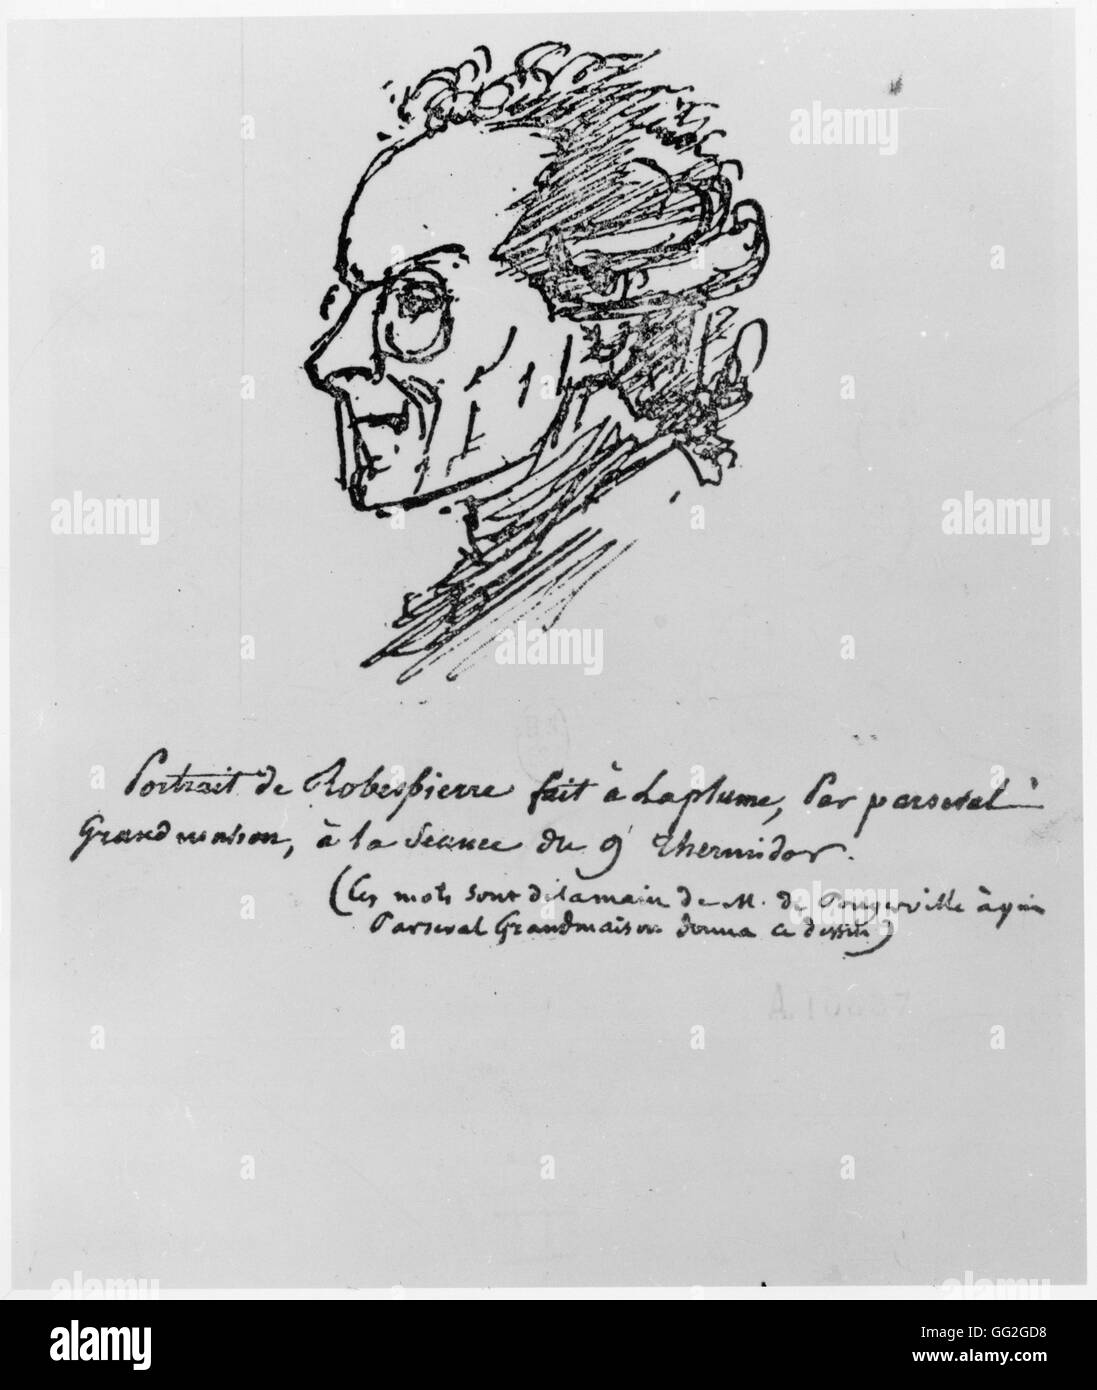 Portrait de Robespierre fait à Laplume, Par parseval
Grandmaison, à la Séance du 9 Thermidor.
(Ces mots sont de la main de M. de Pongerville à qui
Parseval Grandmaison donna ce dessin)
alamy
alamy
alamy
alamy
a
a
a
a
alamy
Image ID: GG2GD8
www.alamy.com